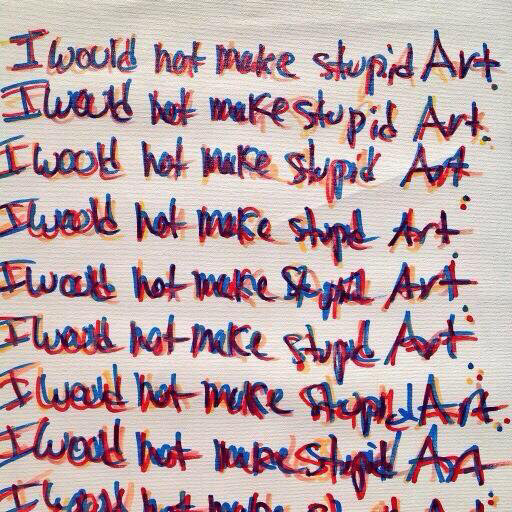 I would not make stupid Art.
I would not make stupid Art.
I would not make stupid Art.
I would not make stupid Art.
I would not make stupid Art.
I would not make stupid Art.
I would not make stupid Art.
I would not make stupid Art
I would not make